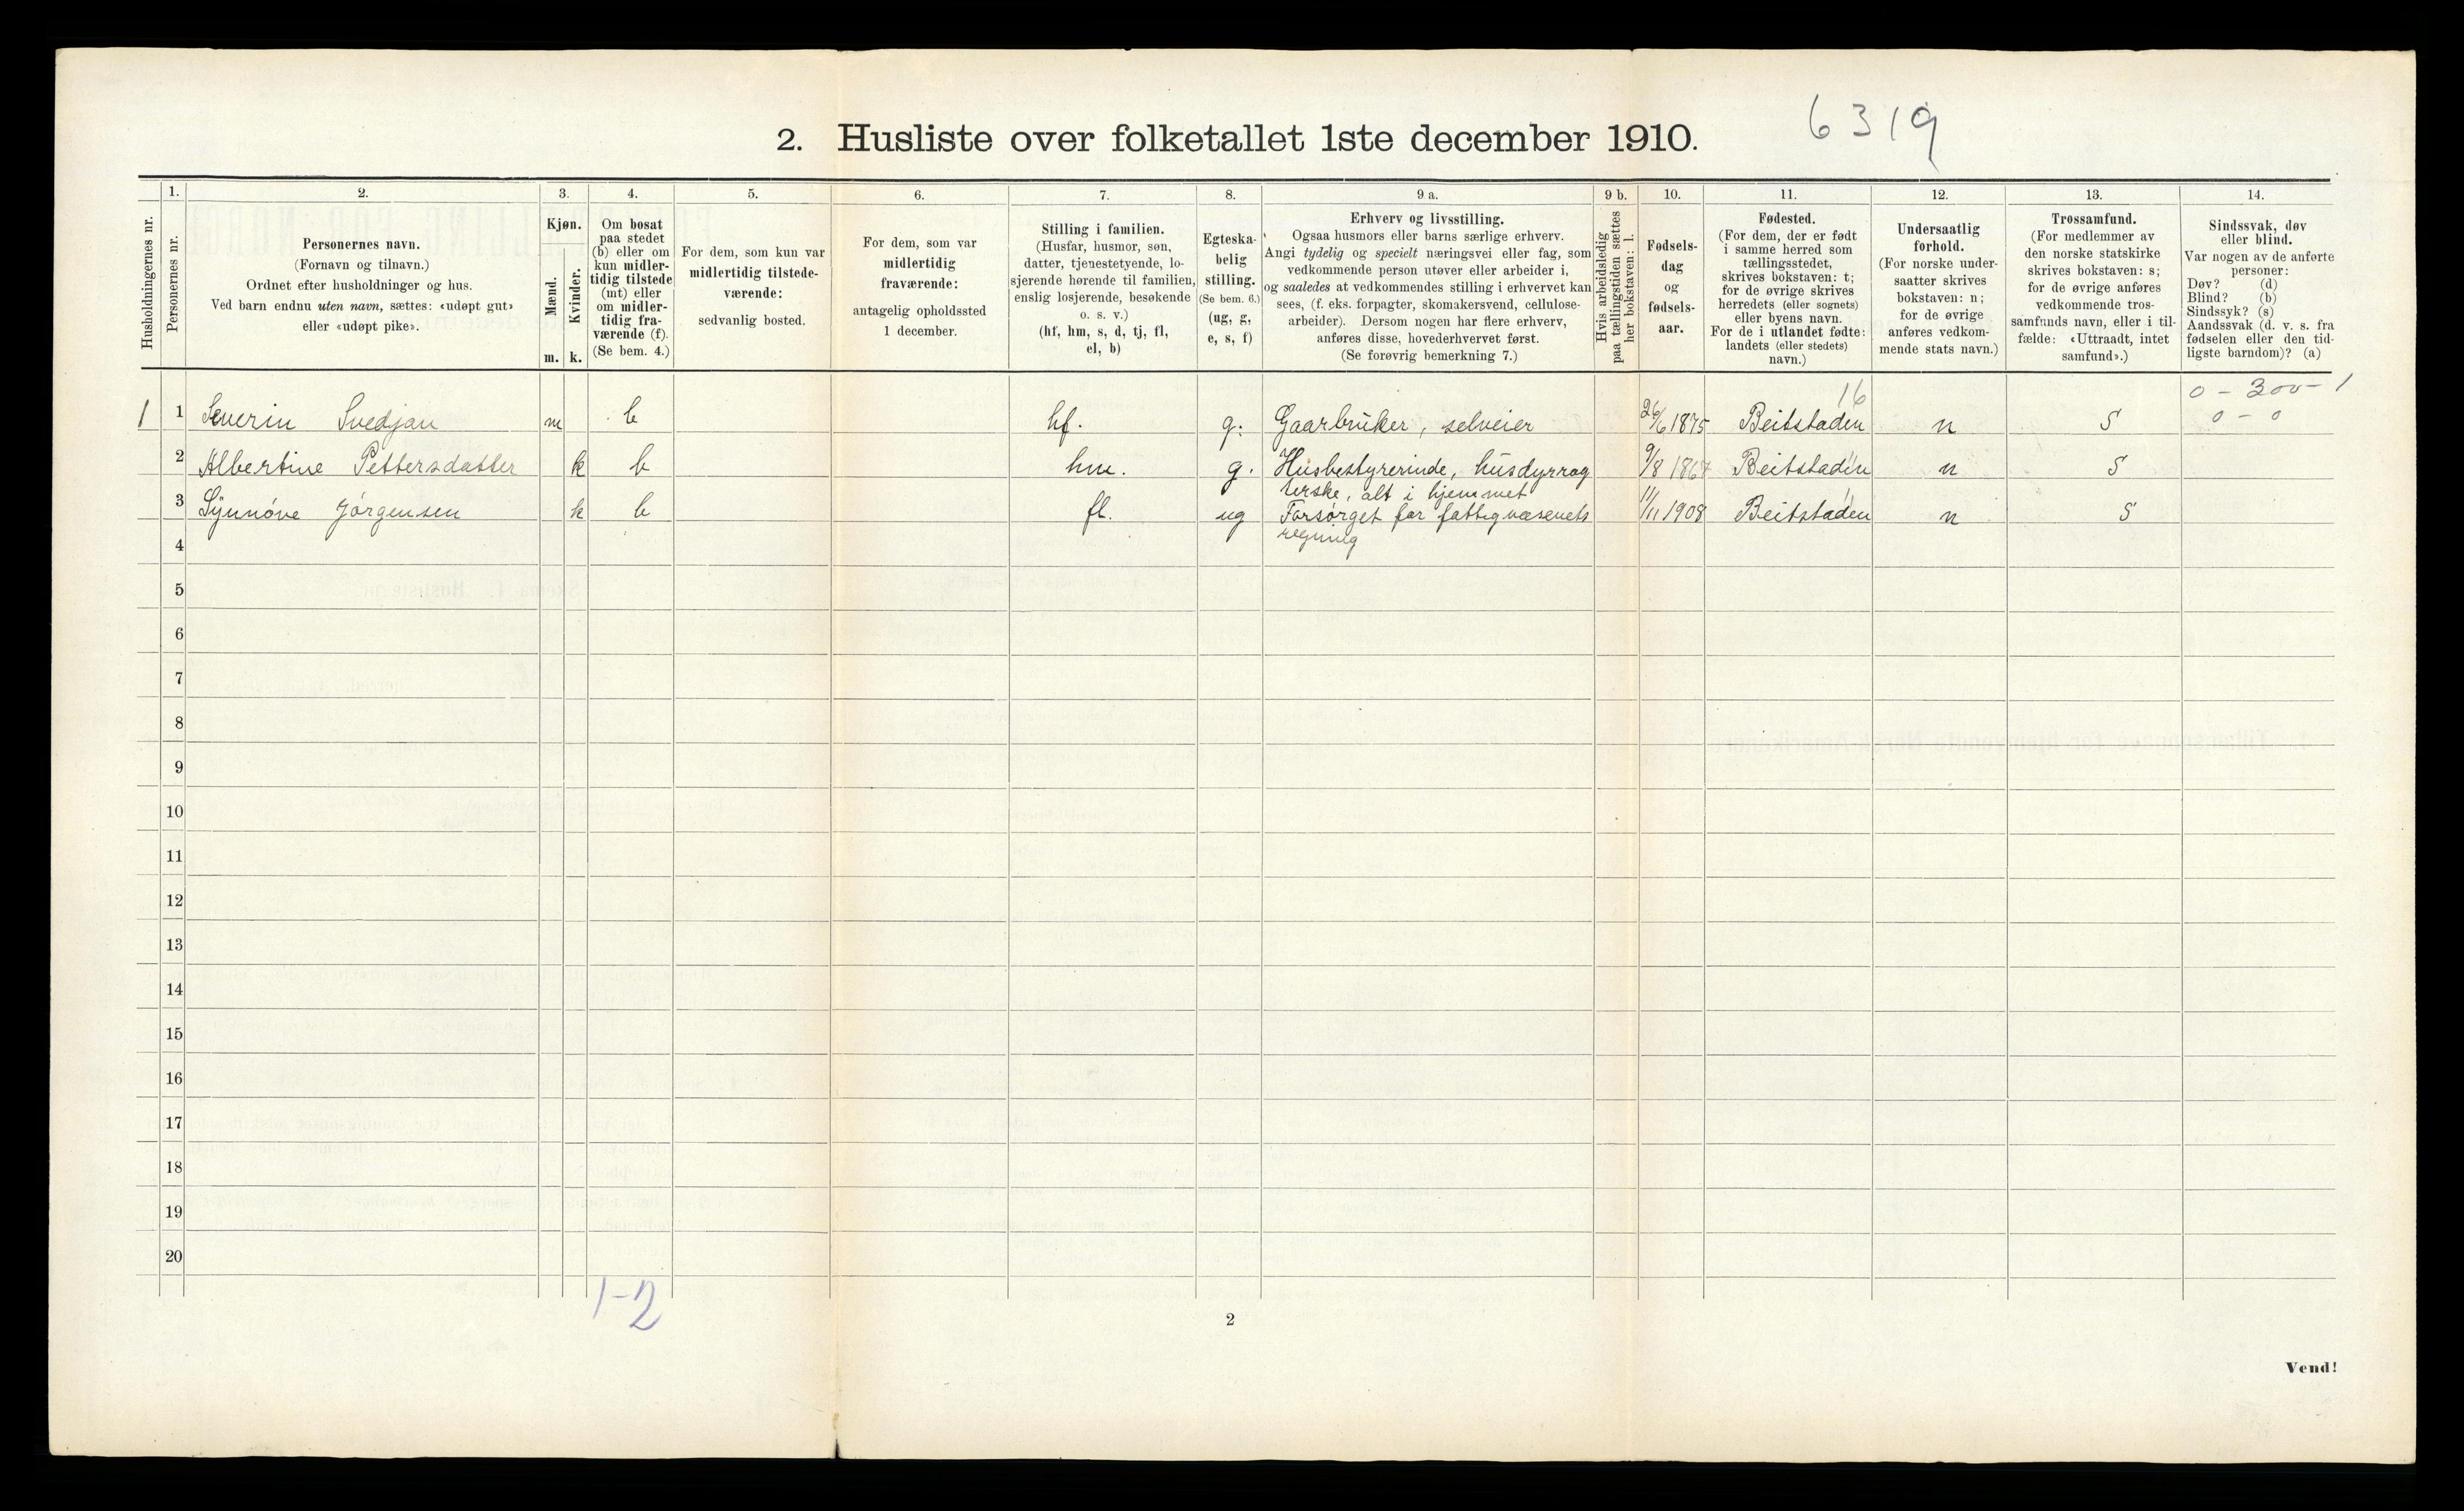 6319
2. Husliste over folketallet 1ste december 1910.
Husholdningernes nr.
1.
Personernes nr.
2.
Personernes navn.
(Fornavn og tilnavn.)
Ordnet efter husholdninger og hus.
Ved barn endnu uten navn, sættes: «udøpt gut»
eller «udøpt pike».
3.
Kjøn.
Mænd.
m.
Kvinder.
k.
4.
Om bosat
paa stedet
(b) eller om
kun midler-
tidig tilstede
(mt) eller
om midler-
tidig fra-
værende (f).
(Se bem. 4.)
5.
For dem, som kun var
midlertidig tilstede-
værende:
sedvanlig bosted.
6.
For dem, som var
midlertidig
fraværende:
antagelig opholdssted
1 december.
7.
Stilling i familien.
(Husfar, husmor, søn,
datter, tjenestetyende, lo-
sjerende hørende til familien,
enslig losjerende, besøkende
o. s. v.)
(hf, hm, s, d, tj, fl,
el, b)
8.
Egteska-
belig
stilling.
(Se bem. 6.)
(ug, g,
e, s, f)
9 a.
Erhverv og livsstilling.
Ogsaa husmors eller barns særlige erhverv.
Angi tydelig og specielt næringsvei eller fag, som
vedkommende person utøver eller arbeider i,
og saaledes at vedkommendes stilling i erhvervet kan
sees, (f. eks. forpagter, skomakersvend, cellulose-
arbeider). Dersom nogen har flere erhverv,
anføres disse, hovederhvervet først.
(Se forøvrig bemerkning 7.)
9 b.
Hvis arbeidsledig
paa tællingstiden sættes
her bokstaven: l.
10.
Fødsels-
dag
og
fødsels-
aar.
11.
Fødested.
(For dem, der er født
i samme herred som
tællingsstedet,
skrives bokstaven: t;
for de øvrige skrives
herredets (eller sognets)
eller byens navn.
For de i utlandet fødte:
landets (eller stedets)
navn.)
12.
Undersaatlig
forhold.
(For norske under-
saatter skrives
bokstaven: n;
for de øvrige
anføres vedkom-
mende stats navn.)
13.
Trossamfund.
(For medlemmer av
den norske statskirke
skrives bokstaven: s;
for de øvrige anføres
vedkommende tros-
samfunds navn, eller i til-
fælde: «Uttraadt, intet
samfund».)
14.
Sindssvak, døv
eller blind.
Var nogen av de anførte
personer:
Døv? (d)
Blind? (b)
Sindssyk? (s)
Aandssvak (d. v. s. fra
fødselen eller den tid-
ligste barndom)? (a)
16
0 - 300 - 1
1 1 Severin Svedjan m b hf. g. Gaarbruker, selveier 26/6 1875 Beitstaden n S 0 - 0
2 Albertine Pettersdatter k b hm. g. Husbestyrerinde, husdyrrøg 9/8 1867 Beitstaden n S
terske, alt i hjemmet
3 Synnöve Jörgensen k b fl. ug Forsörget for fattigvæsenets 11/11 1908 Beitstaden n S
regning
4
5
6
7
8
9
10
11
12
13
14
15
16
17
18
19
20
1-2
2
Vend!